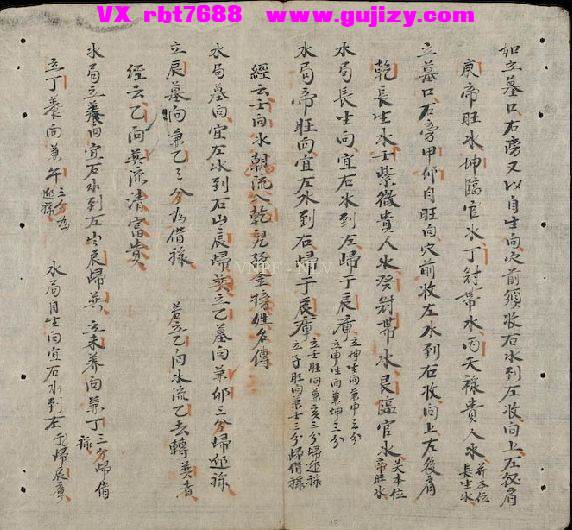 VX rbt7688 www.gujizy.com
如立墓口右旁又以自生向穴前須收右水到左收向上左
庚帝旺水坤臨官水丁封帶水丙天祿貴人水
長生水
立墓口右旁甲卯自旺向穴前收左水到右收向上右
乾長生水壬紫微貴人水癸封帶水艮臨官水
帝旺水
水局長生向宜右水到左歸丁辰庫
立坤生向兼申三分
立申生向兼坤三分
水局帝旺向宜左水到右歸于辰庫
立壬旺向兼亥三分歸
立子旺向兼壬三分歸借祿
經云壬向水朝流入乾兒孫金榜姓名傳
水局墓向宜左水到右山辰歸巽立乙墓向兼卯三分歸
立辰墓向兼乙三分為借祿
若立乙向水流乙去轉巽者
經云乙向巽流清富貴
水局立養向宜右水到左山辰歸巽立未養向兼丁三分歸借
祿
立丁養向兼午三分為
水局自生向宜右水到左
歸辰庫